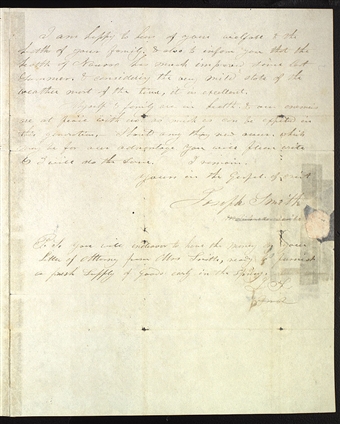 I am happy to hear of your welfare & the
health of your family, & also to inform you that the
health of Nauvoo has much improved since last
Summer, & considering the very mild state of the
weather most of the time, it is excellent.
Myself & family are in health & our enemies
are at peace with us as much as can be expected in
this generation. Should any thing new occur, which
may be for our advantage you will please write
& I will do the same. I remain
Yours in the Gospel of Christ
Joseph Smith
P.S. you will endeavor to have the money on your
Letter of Attorney from Mr. Smith, ready to furnish
a fresh supply of Goods early in the Spring.
J. S.